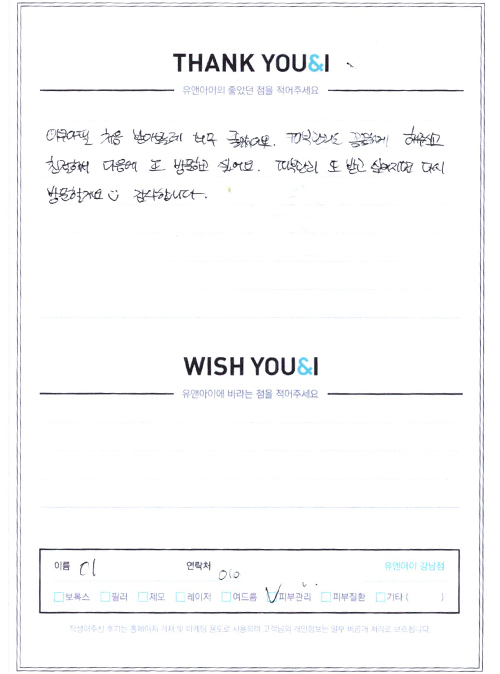 THANK YOU&I
유앤아이의 좋았던 점을 적어주세요
아쿠아필 처음 받아봤는데 너무 좋았어요. 피부관리도 꼼꼼하게 해주시고
친절해서 다음에 또 방문하고 싶어요. 피부관리 또 받고 싶어지면 다시
방문할게요 감사합니다.
WISH YOU&I
유앤아이에 바라는 점을 적어주세요
이름 이 연락처 010 유앤아이 강남점
보톡스 필러 제모 레이저 여드름 피부관리 피부질환 기타 ( )
작성해주신 후기는 홈페이지 게재 및 마케팅 용도로 사용되며 고객님의 개인정보는 일부 비공개 처리로 보호됩니다.